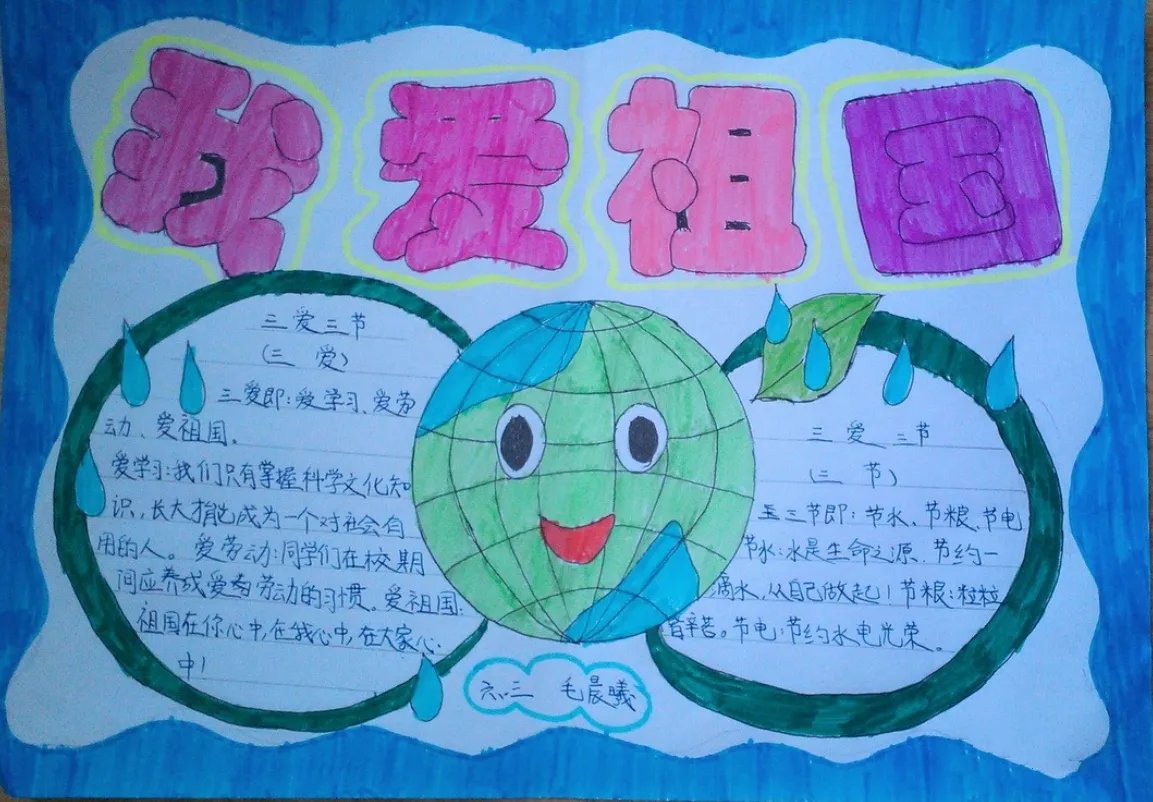 我爱祖国
三爱三节
(三 爱)
三爱即:爱学习、爱劳
动、爱祖国。
爱学习:我们只有掌握科学文化知
识,长大才能成为一个对社会有
用的人。爱劳动:同学们在校期
间应养成爱劳动的习惯。爱祖国:
祖国在你心中,在我心中,在大家心
中!
三爱三节
(三 节)
三节即:节水、节粮、节电
节水:水是生命之源,节约一
滴水,从自己做起!节粮:粒粒
皆辛苦。节电:节约水电光荣。
六.三 毛晨曦